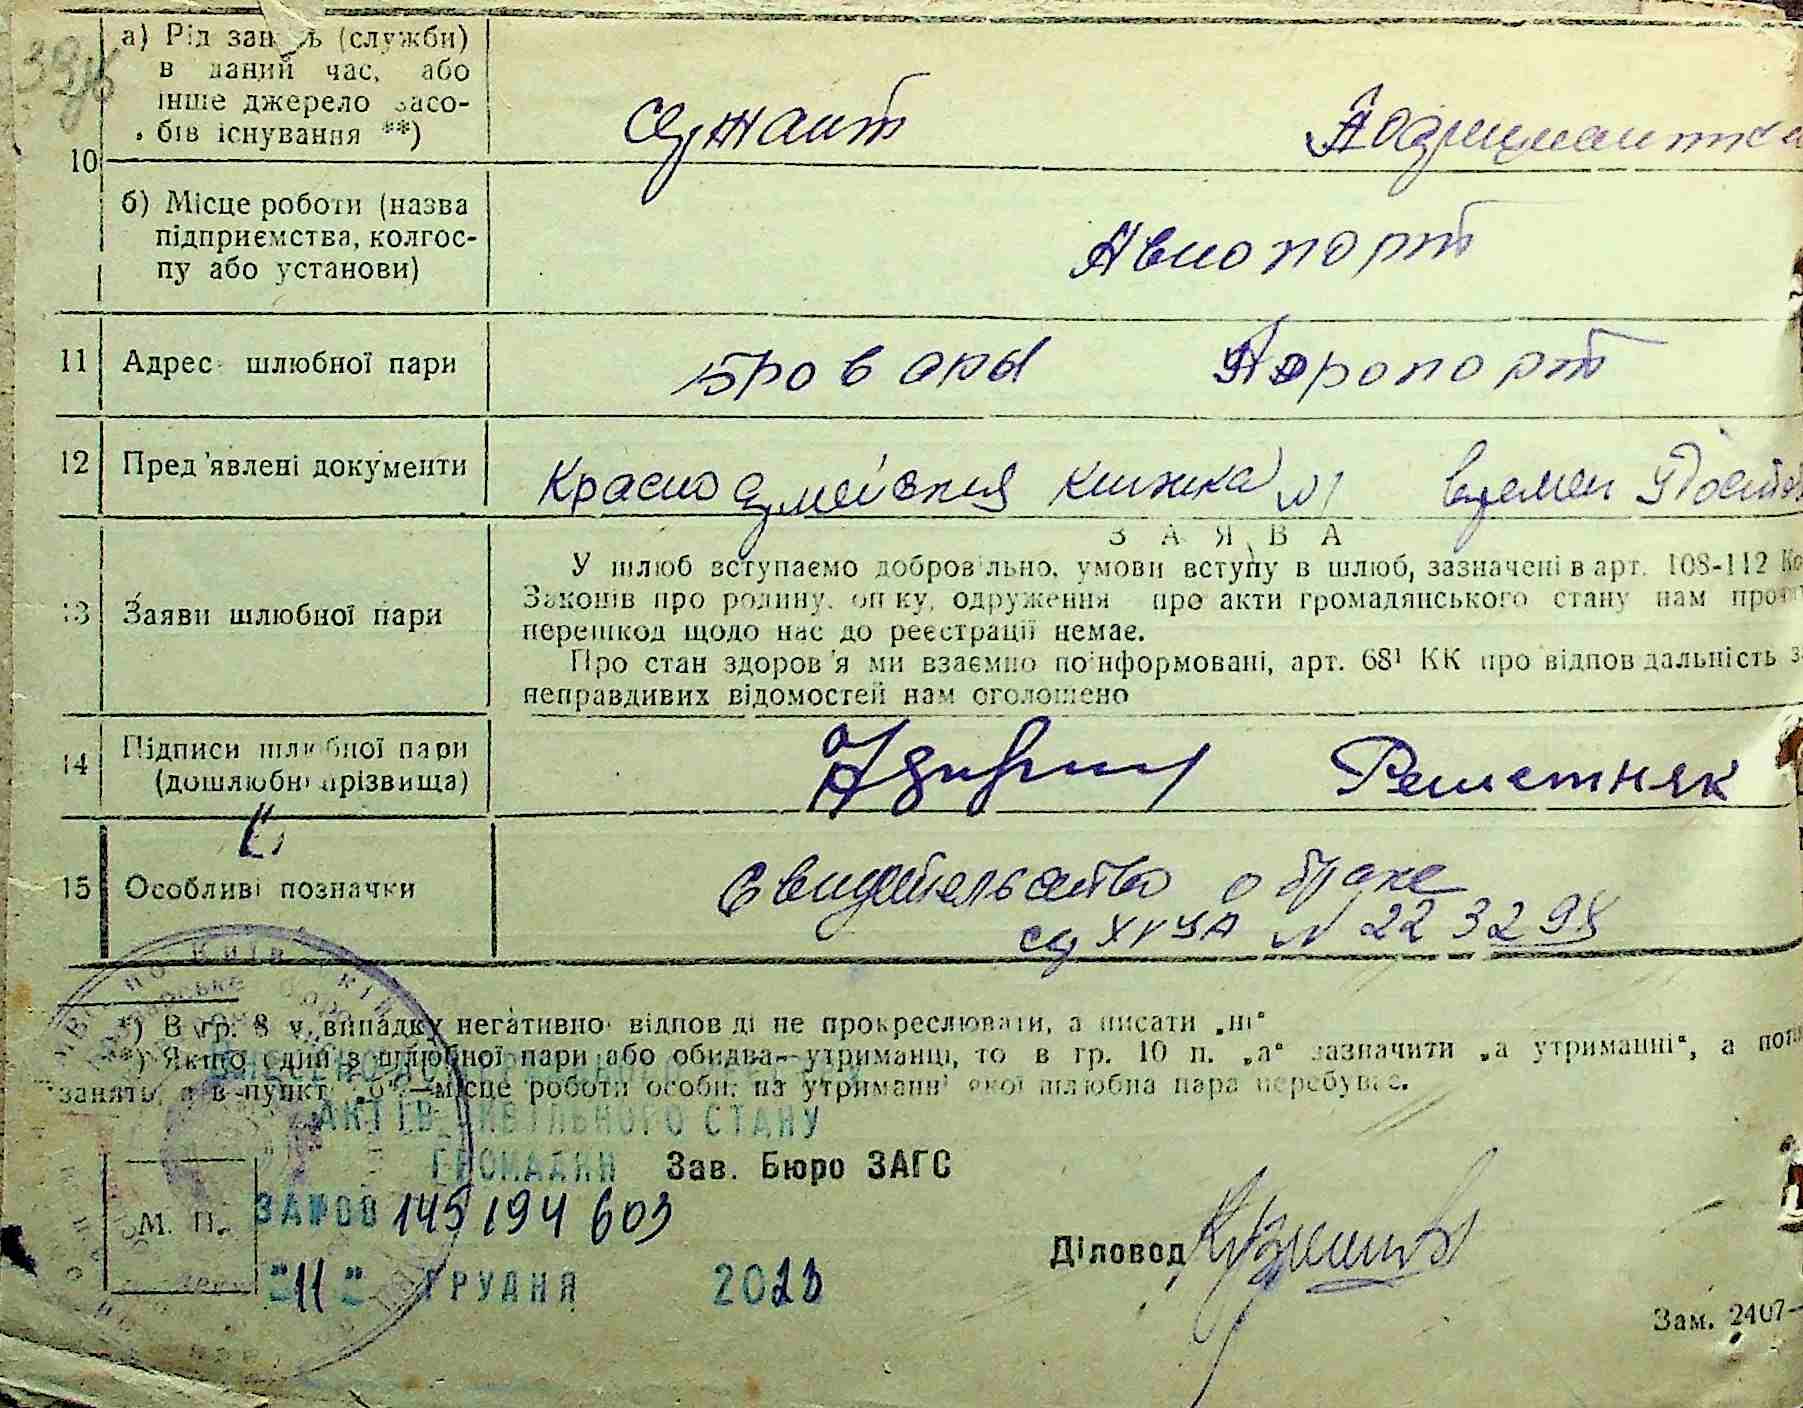 а) Рід занять (служби)
в даний час, або
інше джерело засо-
бів існування **)
сержант
10
б) Місце роботи (назва
підприємства, колгос-
пу або установи)
Авиопорт
11 Адрес шлюбної пари
Бровары Аэропорт
12 Пред'явлені документи
Красноармейская книжка №1 времен
ЗАЯВА
У шлюб вступаємо добровільно, умови вступу в шлюб, зазначені в арт. 108-112
13 Заяви шлюбної пари
Законів про родину, опіку, одруження про акти громадянського стану нам
перешкод щодо нас до реєстрації немає.
Про стан здоров'я ми взаємно поінформовані, арт. 68¹ КК про відповідальність
неправдивих відомостей нам оголошено
14 Підписи шлюбної пари
(дошлюбні прізвища)
Решетняк
15 Особливі позначки
Свидетельство о браке
№ 223298
*) В гр. 8 у випадку негативної відповіді не прокреслювати, а писати „ні“
**) Якщо один з шлюбної пари або обидва утриманці, то в гр. 10 п. „а“ зазначити „а утриманні“, а
занять, а в пункті „б“—місце роботи особи, на утриманні якої шлюбна пара перебуває.
АКТІВ ЦИВІЛЬНОГО СТАНУ
ГРОМАДЯН Зав. Бюро ЗАГС
М. П.
145 194 603
Діловод
"11" ГРУДНЯ 2023
Зам. 2407-